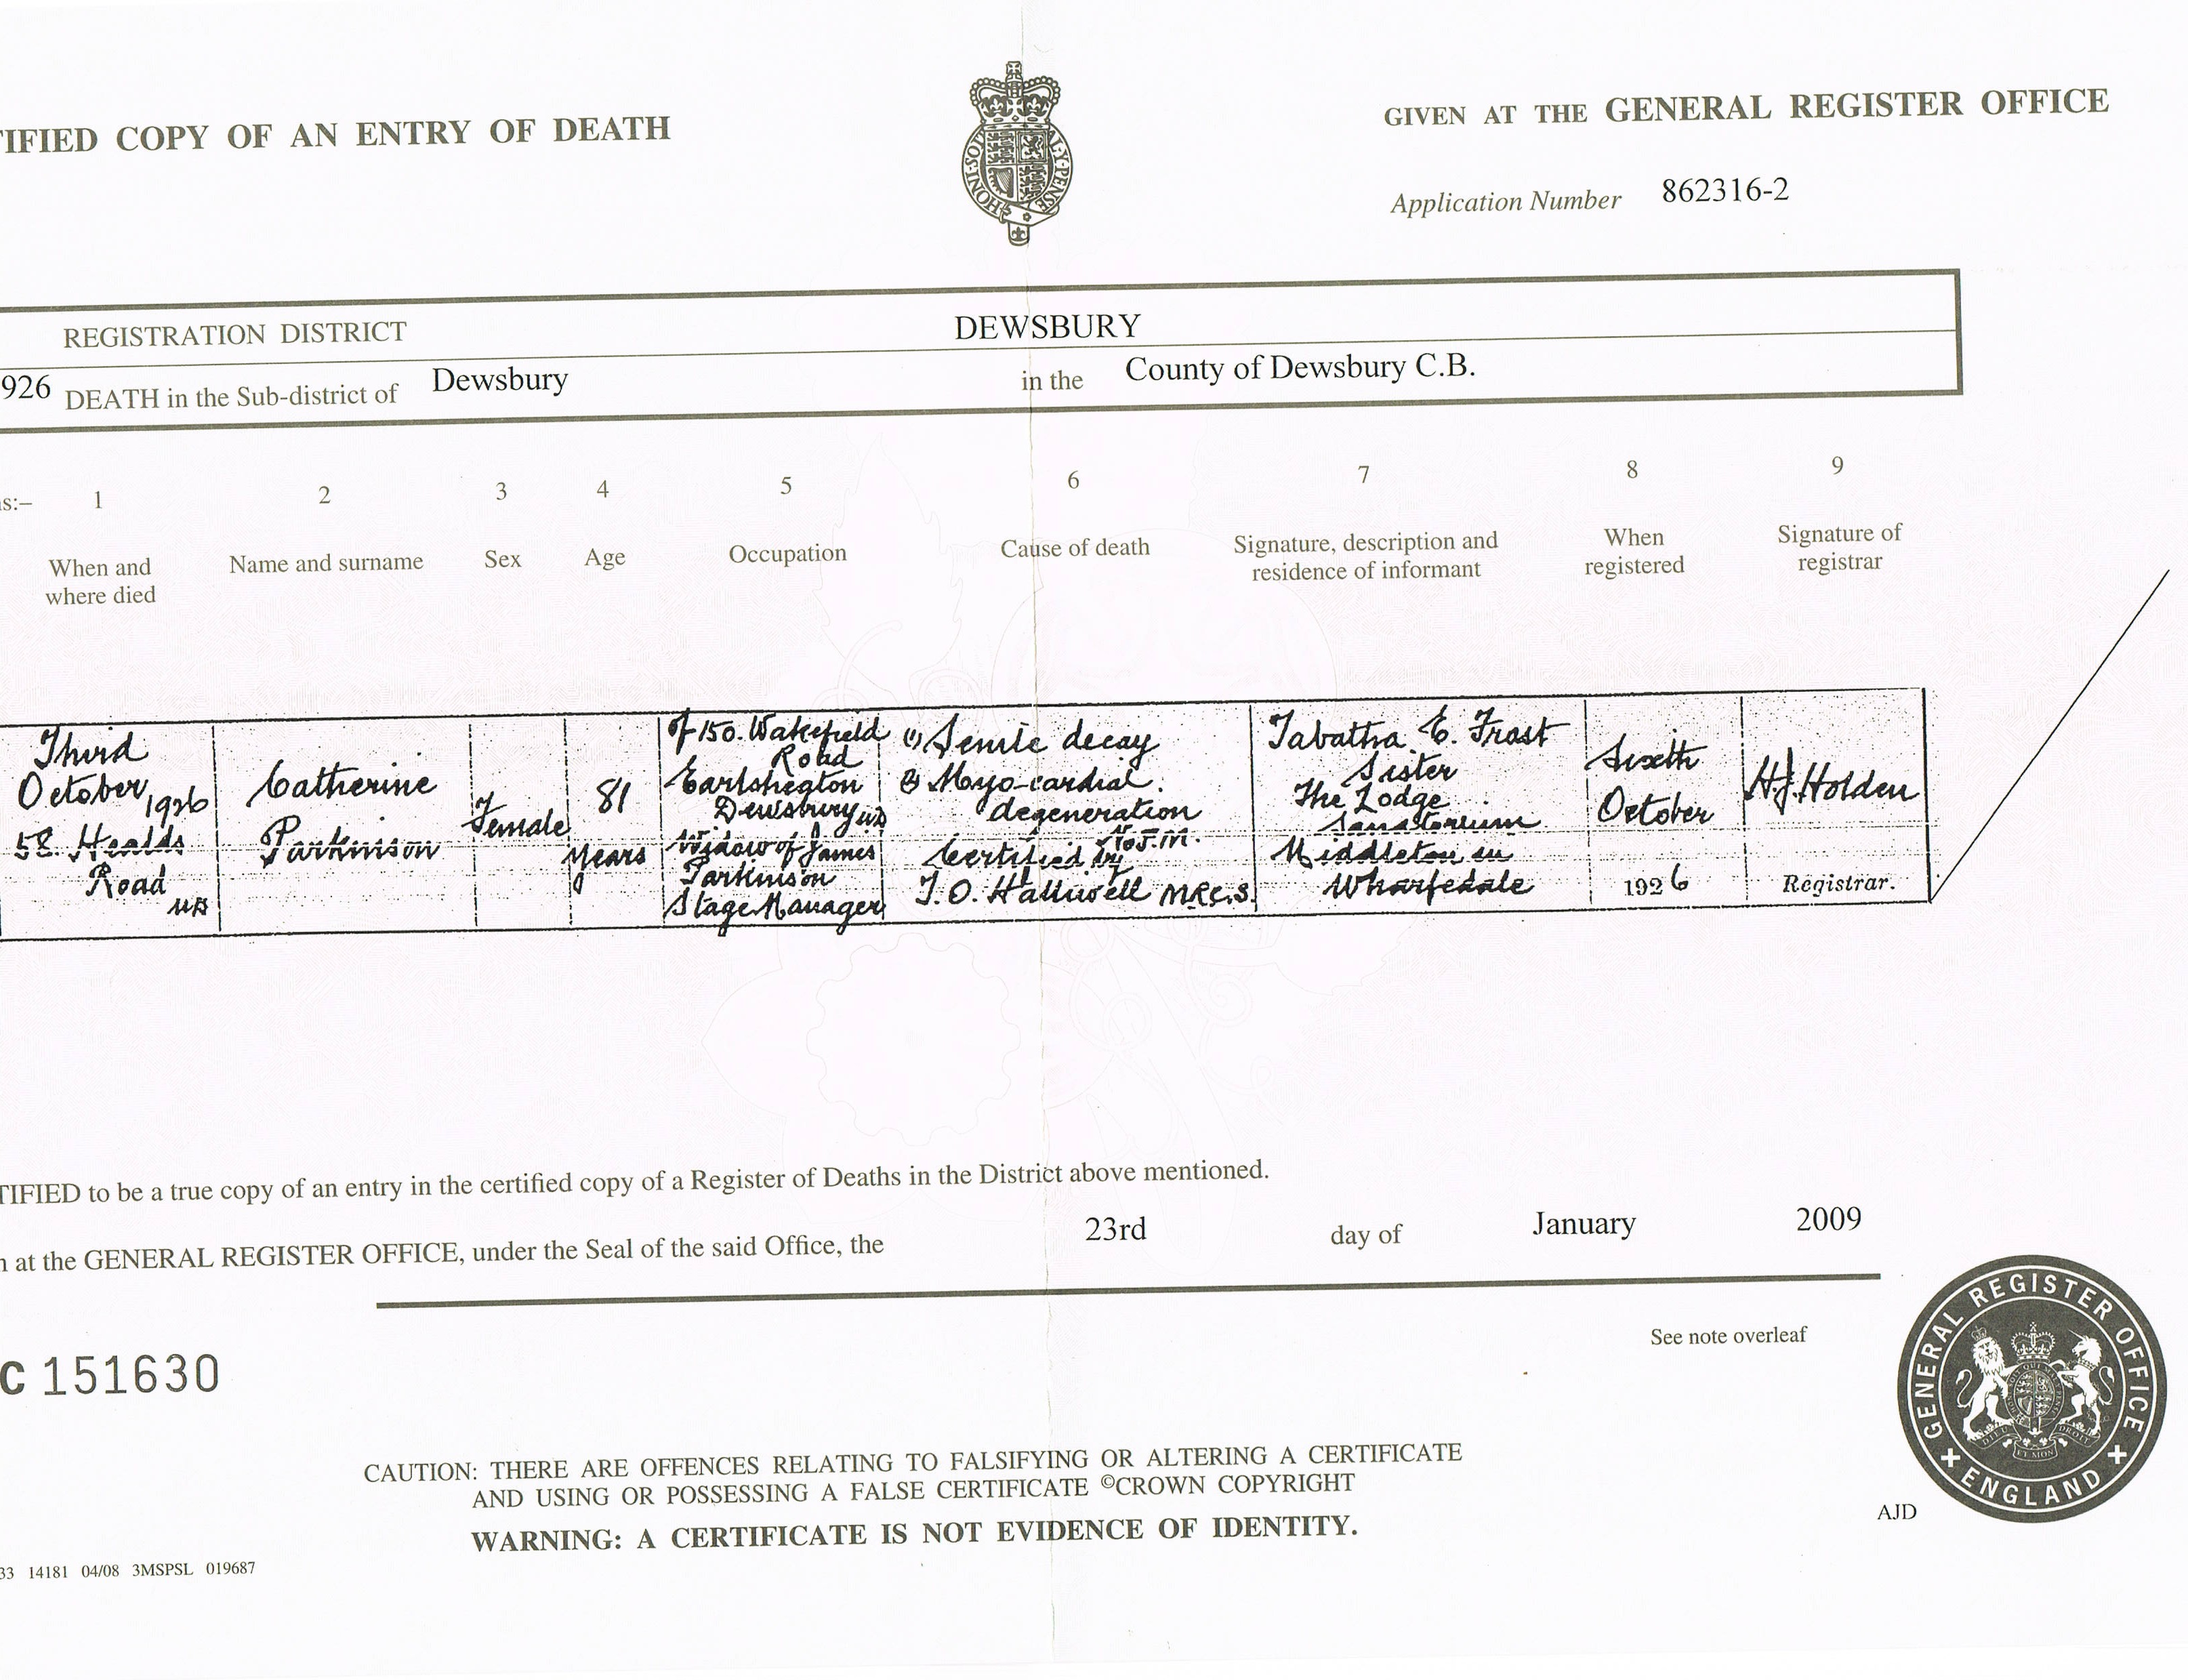 TIFIED COPY OF AN ENTRY OF DEATH
GIVEN AT THE GENERAL REGISTER OFFICE
Application Number 862316-2
HONI·SOI AL·Y·PENSE
REGISTRATION DISTRICT DEWSBURY
926 DEATH in the Sub-district of Dewsbury in the County of Dewsbury C.B.
ns:– 1 2 3 4 5 6 7 8 9
When and
where died
Name and surname
Sex
Age
Occupation
Cause of death
Signature, description and
residence of informant
When
registered
Signature of
registrar
Third
October, 1926
58 Healds
Road
UD
Catherine
Parkinson
Female
81
years
of 150. Wakefield
Road
Earlsheaton
Dewsbury UD
Widow of James
Parkinson
Stage Manager
(1) Senile decay
(2) Myo-cardial
degeneration
No P.M.
Certified by
T. O. Halliwell M.R.C.S.
Tabatha E. Frost
Sister
The Lodge
Sanatorium
Middleton in
Wharfedale
Sixth
October
1926
H.J. Holden
Registrar.
TIFIED to be a true copy of an entry in the certified copy of a Register of Deaths in the District above mentioned.
n at the GENERAL REGISTER OFFICE, under the Seal of the said Office, the 23rd day of January 2009
See note overleaf
C 151630
GENERAL REGISTER OFFICE
ENGLAND
CAUTION: THERE ARE OFFENCES RELATING TO FALSIFYING OR ALTERING A CERTIFICATE
AND USING OR POSSESSING A FALSE CERTIFICATE ©CROWN COPYRIGHT
WARNING: A CERTIFICATE IS NOT EVIDENCE OF IDENTITY.
AJD
33 14181 04/08 3MSPSL 019687